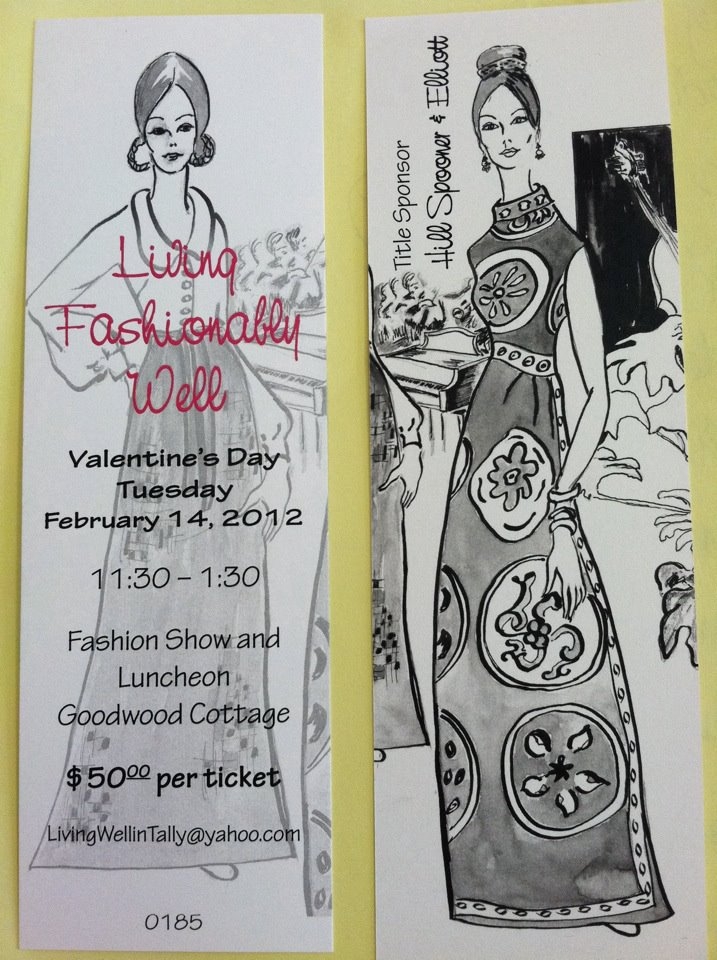 Living
Fashionably
Well
Valentine's Day
Tuesday
February 14, 2012
11:30 – 1:30
Fashion Show and
Luncheon
Goodwood Cottage
$50⁰⁰ per ticket
LivingWellinTally@yahoo.com
0185
Title Sponsor
Hill Spooner & Elliott